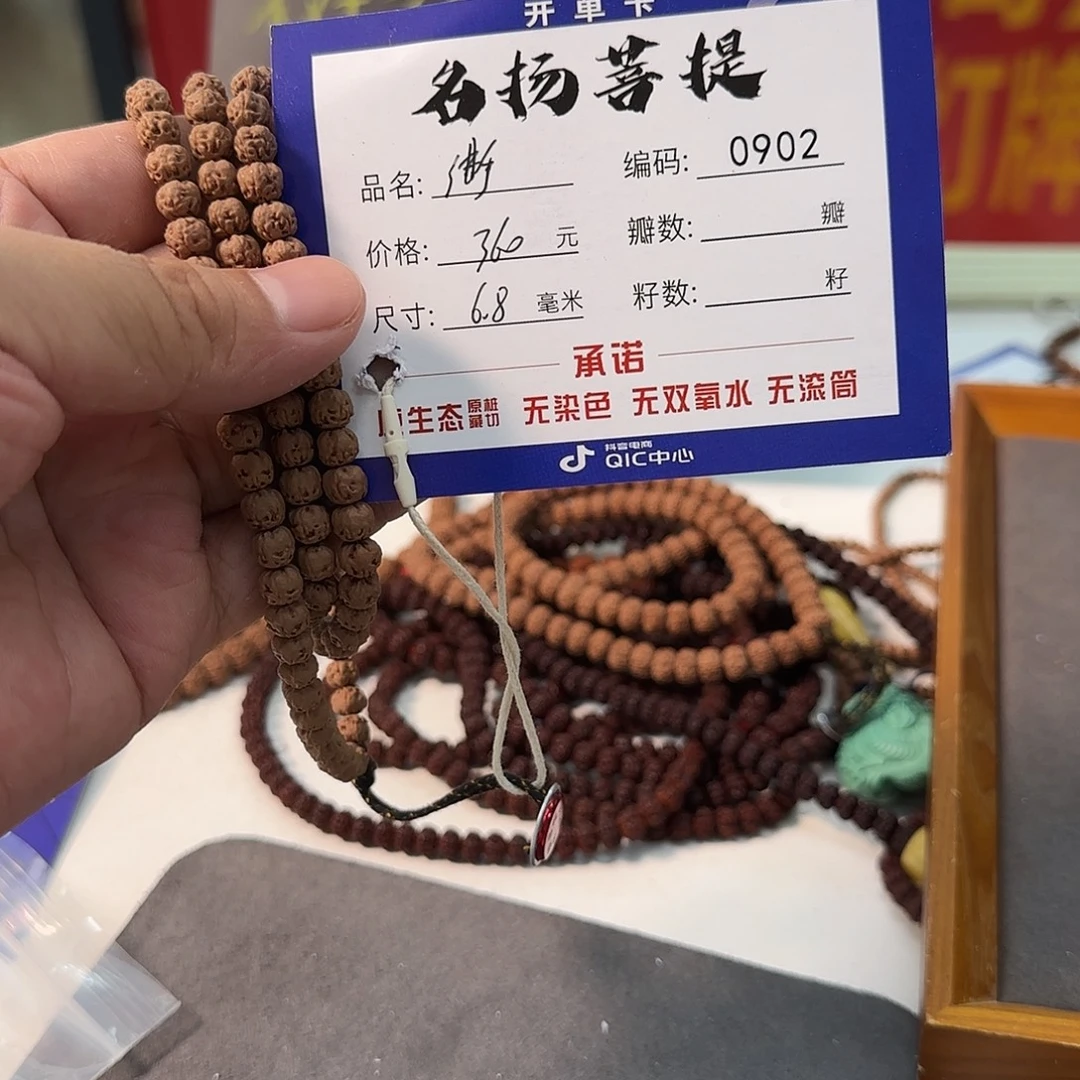 开单卡
名扬菩提
品名: 编码: 0902
价格: 360 元 瓣数: 瓣
尺寸: 6.8 毫米 籽数: 籽
承诺
原生态 原桩藏切 无染色 无双氧水 无滚筒
抖音电商
QIC中心
打牌